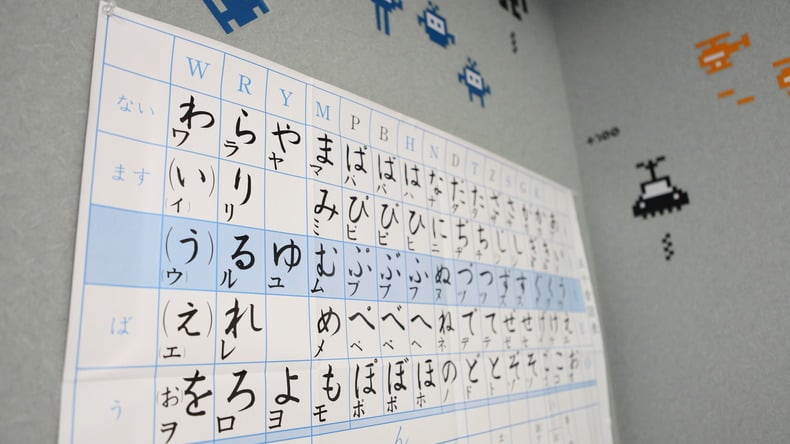 W R Y M P B H N D T Z S G K
ない わ ら や ま ぱ ば は な だ た ざ さ が か あ
ワ ラ ヤ マ パ バ ハ ナ ダ タ
ます (い) り み ぴ び ひ に ぢ ち じ し ぎ き い
(イ) リ ミ ピ ビ ヒ ニ ヂ チ
(う) る ゆ む ぷ ぶ ふ ぬ づ つ ず す ぐ く う
(ウ) ル ユ ム プ ブ フ ヌ ヅ ツ
ば (え) れ め ぺ べ へ ね で て ぜ せ げ け え
(エ) レ メ ペ ベ ヘ ネ デ テ
う (お)を ろ よ も ぽ ぼ ほ の ど と ぞ そ ご こ お
ヲ ロ ヨ モ ポ ボ ホ ノ ド ト
ん
+100